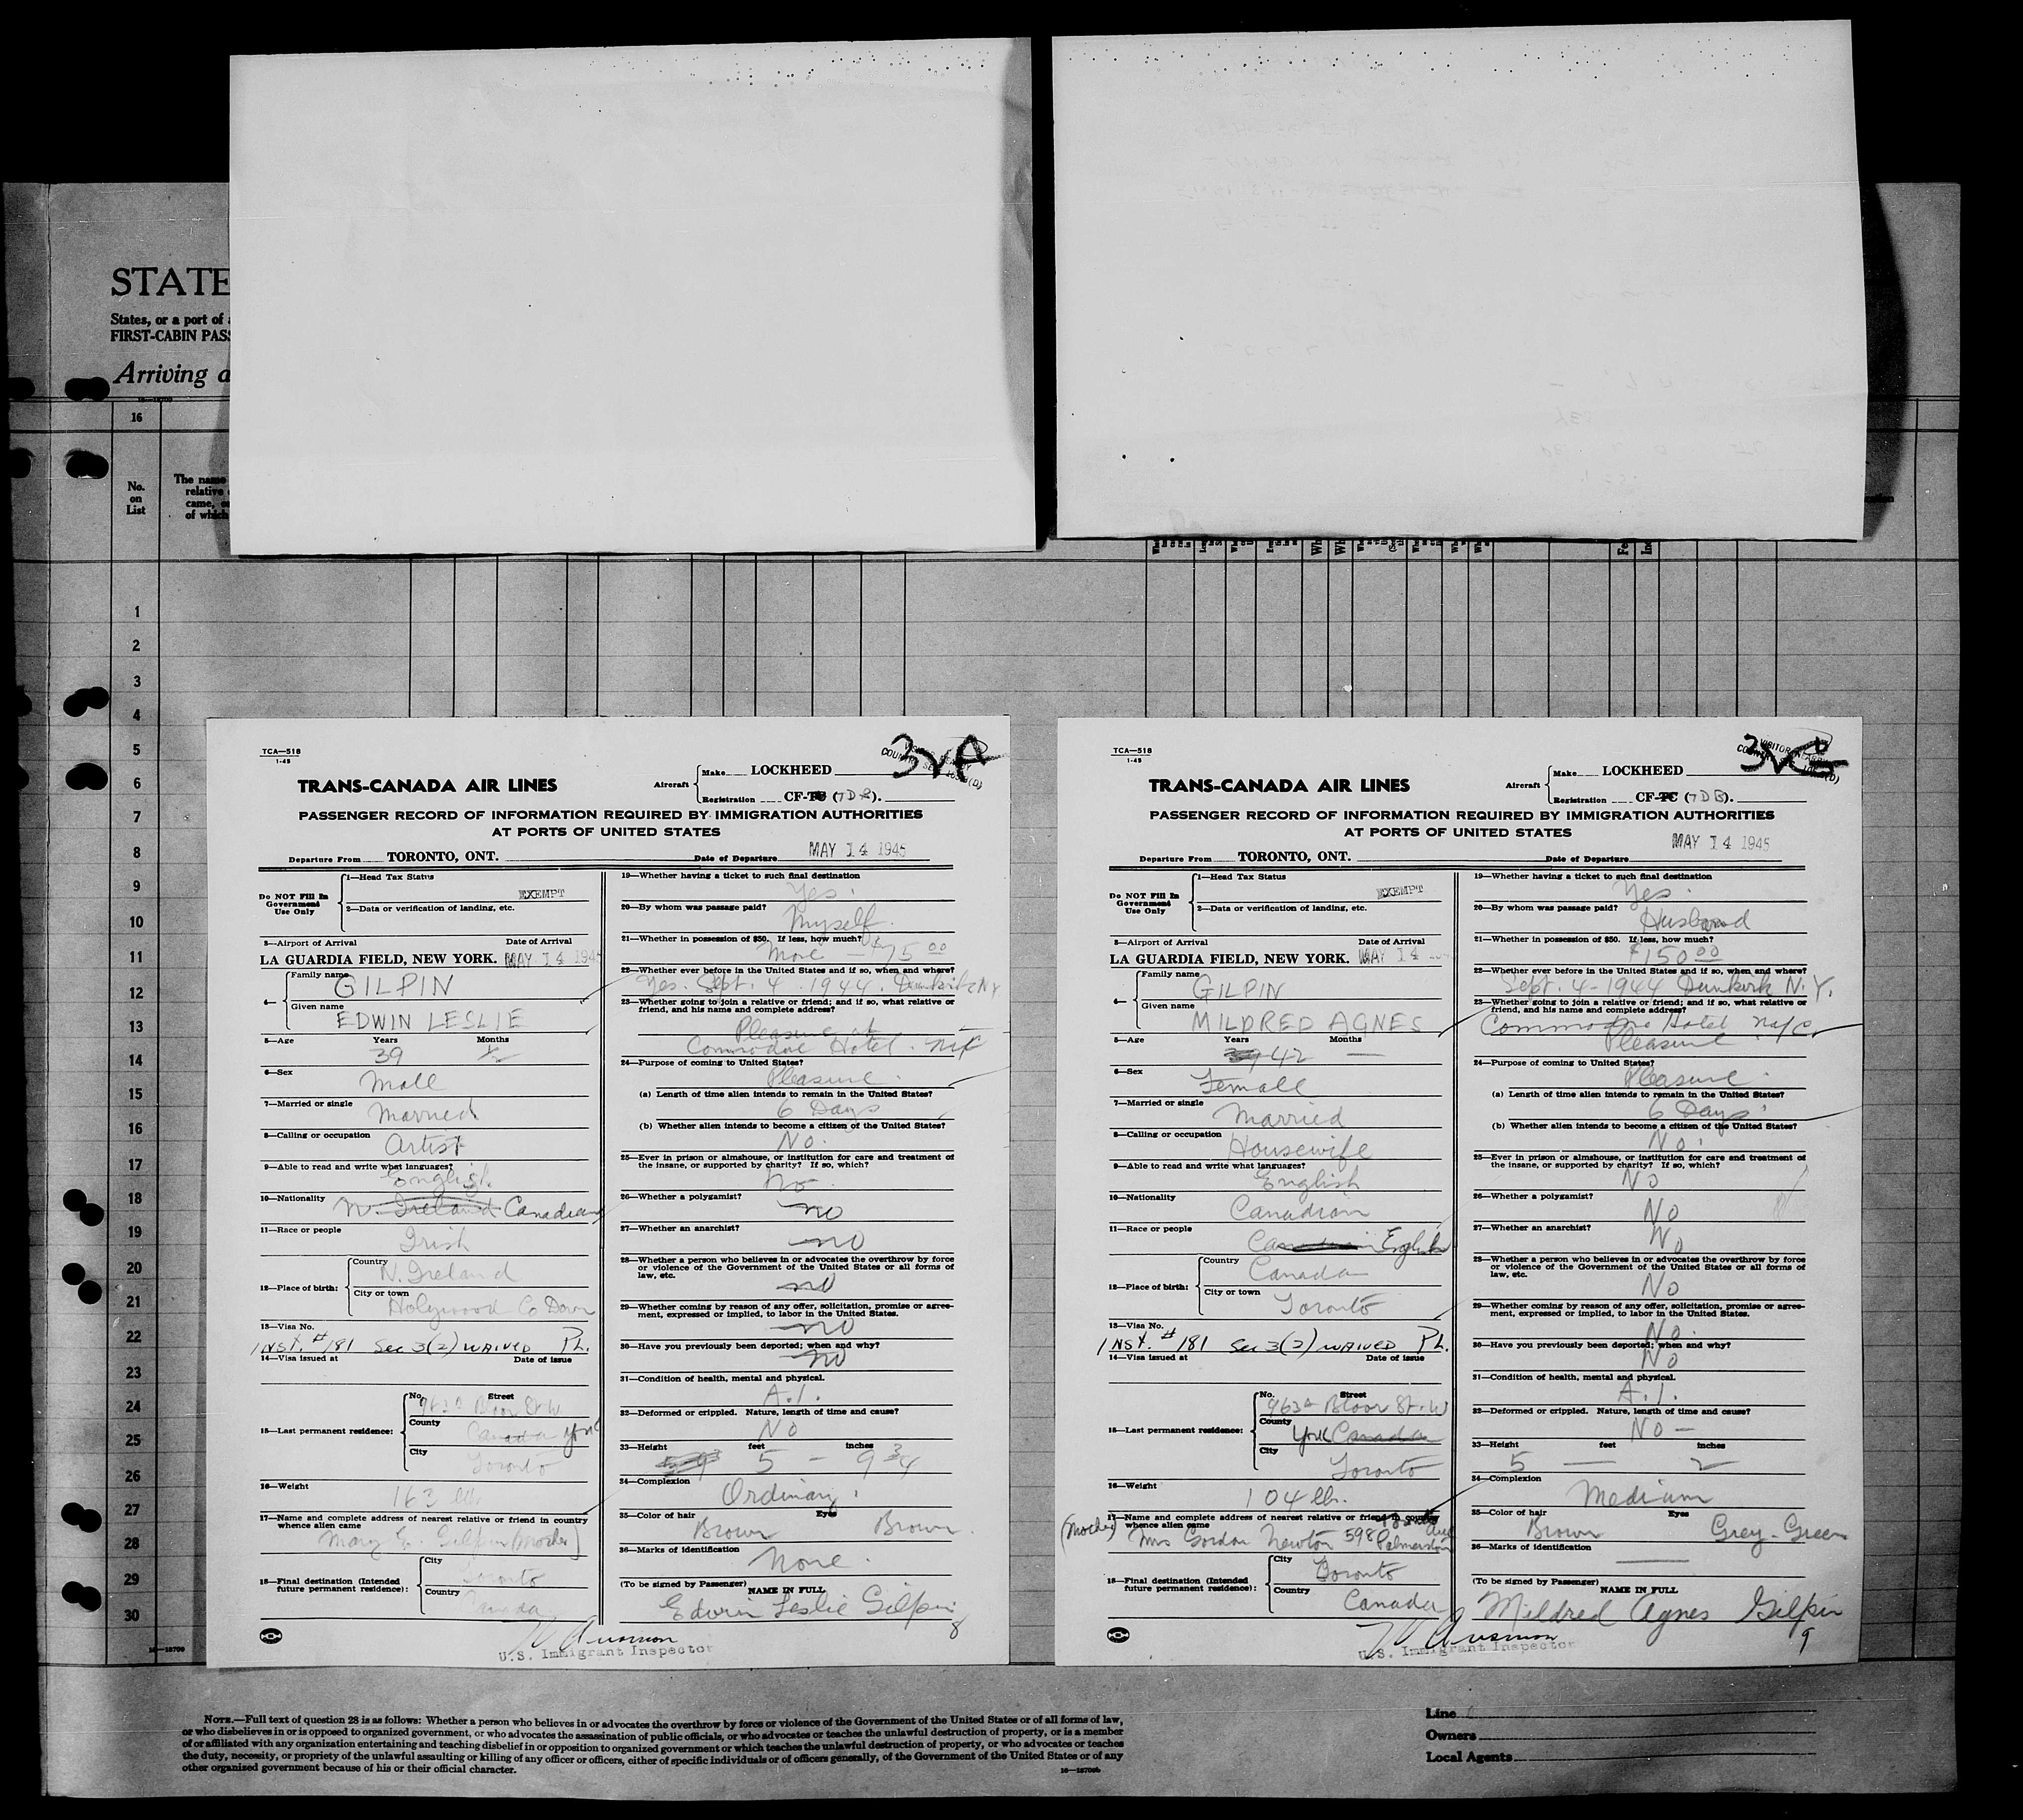 STATE
States, or a port of
FIRST-CABIN PAS
Arriving a
16—18700
16
No.
on
List
The name
relative
came,
of which
1
2
3
4
5
6
7
8
9
10
11
12
13
14
15
16
17
18
19
20
21
22
23
24
25
26
27
28
29
30
16—18700
TCA—518
1-45
3VA
TRANS-CANADA AIR LINES
Aircraft
Make LOCKHEED
Registration CF-TC (TDB).
PASSENGER RECORD OF INFORMATION REQUIRED BY IMMIGRATION AUTHORITIES
AT PORTS OF UNITED STATES
Departure From TORONTO, ONT. Date of Departure MAY 14 1945
Do NOT Fill In
Government
Use Only
1—Head Tax Status
EXEMPT
2—Data or verification of landing, etc.
3—Airport of Arrival Date of Arrival
LA GUARDIA FIELD, NEW YORK. MAY 14 194
4—
Family name
GILPIN
Given name
EDWIN LESLIE
5—Age Years Months
39
6—Sex
Male
7—Married or single
Married
8—Calling or occupation
Artist
9—Able to read and write what languages?
English
10—Nationality
N. Ireland Canadian
11—Race or people
Irish
12—Place of birth:
Country
N. Ireland
City or town
Holywood Co Down
13—Visa No.
INST. #181 Sec 3(2) WAIVED P.L.
14—Visa issued at Date of issue
15—Last permanent residence:
No. Street
963a Bloor St W
County
Canada York
City
Toronto
16—Weight
163 lbs
17—Name and complete address of nearest relative or friend in country
whence alien came
Mary E. Gilpin (Mother)
18—Final destination (Intended
future permanent residence):
City
Toronto
Country
Canada
19—Whether having a ticket to such final destination
Yes.
20—By whom was passage paid?
Myself.
21—Whether in possession of $50. If less, how much?
More — $75 00
22—Whether ever before in the United States and if so, when and where?
Yes. Sept. 4. 1944. Dunkirk NY
23—Whether going to join a relative or friend; and if so, what relative or
friend, and his name and complete address?
Pleasure at
Commodore Hotel. NYC
24—Purpose of coming to United States?
Pleasure.
(a) Length of time alien intends to remain in the United States?
6 Days
(b) Whether alien intends to become a citizen of the United States?
No.
25—Ever in prison or almshouse, or institution for care and treatment of
the insane, or supported by charity? If so, which?
No.
26—Whether a polygamist?
no
27—Whether an anarchist?
no
28—Whether a person who believes in or advocates the overthrow by force
or violence of the Government of the United States or all forms of
law, etc.
no
29—Whether coming by reason of any offer, solicitation, promise or agree-
ment, expressed or implied, to labor in the United States.
no
30—Have you previously been deported; when and why?
no
31—Condition of health, mental and physical.
A.1.
32—Deformed or crippled. Nature, length of time and cause?
No
33—Height feet inches
5 — 9 3/4
34—Complexion
Ordinary.
35—Color of hair Eyes
Brown Brown.
36—Marks of identification
None.
(To be signed by Passenger) NAME IN FULL
Edwin Leslie Gilpin
8
U.S. Immigrant Inspector
TCA—518
1-45
TRANS-CANADA AIR LINES
Aircraft
Make LOCKHEED
Registration CF-TC (TDB).
PASSENGER RECORD OF INFORMATION REQUIRED BY IMMIGRATION AUTHORITIES
AT PORTS OF UNITED STATES
Departure From TORONTO, ONT. Date of Departure MAY 14 1945
Do NOT Fill In
Government
Use Only
1—Head Tax Status
EXEMPT
2—Data or verification of landing, etc.
3—Airport of Arrival Date of Arrival
LA GUARDIA FIELD, NEW YORK. MAY 14
4—
Family name
GILPIN
Given name
MILDRED AGNES
5—Age Years Months
39 42 —
6—Sex
Female
7—Married or single
Married
8—Calling or occupation
Housewife
9—Able to read and write what languages?
English
10—Nationality
Canadian
11—Race or people
Canadian English
12—Place of birth:
Country
Canada
City or town
Toronto
13—Visa No.
INST. #181 Sec 3(2) WAIVED P.L.
14—Visa issued at Date of issue
15—Last permanent residence:
No. Street
963a Bloor St. W
County
York Canada
City
Toronto
16—Weight
104 lb.
17—Name and complete address of nearest relative or friend in country
whence alien came
(Mother) Mrs Gordon Newton 598 Palmerston
18—Final destination (Intended
future permanent residence):
City
Toronto
Country
Canada
19—Whether having a ticket to such final destination
Yes.
20—By whom was passage paid?
Husband
21—Whether in possession of $50. If less, how much?
$150 00
22—Whether ever before in the United States and if so, when and where?
Sept. 4 - 1944 Dunkirk N.Y.
23—Whether going to join a relative or friend; and if so, what relative or
friend, and his name and complete address?
Commodore Hotel NYC.
Pleasure
24—Purpose of coming to United States?
Pleasure.
(a) Length of time alien intends to remain in the United States?
6 Days
(b) Whether alien intends to become a citizen of the United States?
No.
25—Ever in prison or almshouse, or institution for care and treatment of
the insane, or supported by charity? If so, which?
No
26—Whether a polygamist?
No
27—Whether an anarchist?
No
28—Whether a person who believes in or advocates the overthrow by force
or violence of the Government of the United States or all forms of
law, etc.
No
29—Whether coming by reason of any offer, solicitation, promise or agree-
ment, expressed or implied, to labor in the United States.
No.
30—Have you previously been deported; when and why?
No
31—Condition of health, mental and physical.
A.1.
32—Deformed or crippled. Nature, length of time and cause?
No —
33—Height feet inches
5 — 2
34—Complexion
Medium
35—Color of hair Eyes
Brown Grey-Green
36—Marks of identification
(To be signed by Passenger) NAME IN FULL
Mildred Agnes Gilpin
9
U.S. Immigrant Inspector
NOTE.—Full text of question 28 is as follows: Whether a person who believes in or advocates the overthrow by force or violence of the Government of the United States or of all forms of law,
or who disbelieves in or is opposed to organized government, or who advocates the assassination of public officials, or who advocates or teaches the unlawful destruction of property, or is a member
of or affiliated with any organization entertaining and teaching disbelief in or opposition to organized government or which teaches the unlawful destruction of property, or who advocates or teaches
the duty, necessity, or propriety of the unlawful assaulting or killing of any officer or officers, either of specific individuals or of officers generally, of the Government of the United States or of any
other organized government because of his or their official character.
16—18700b
Line
Owners
Local Agents